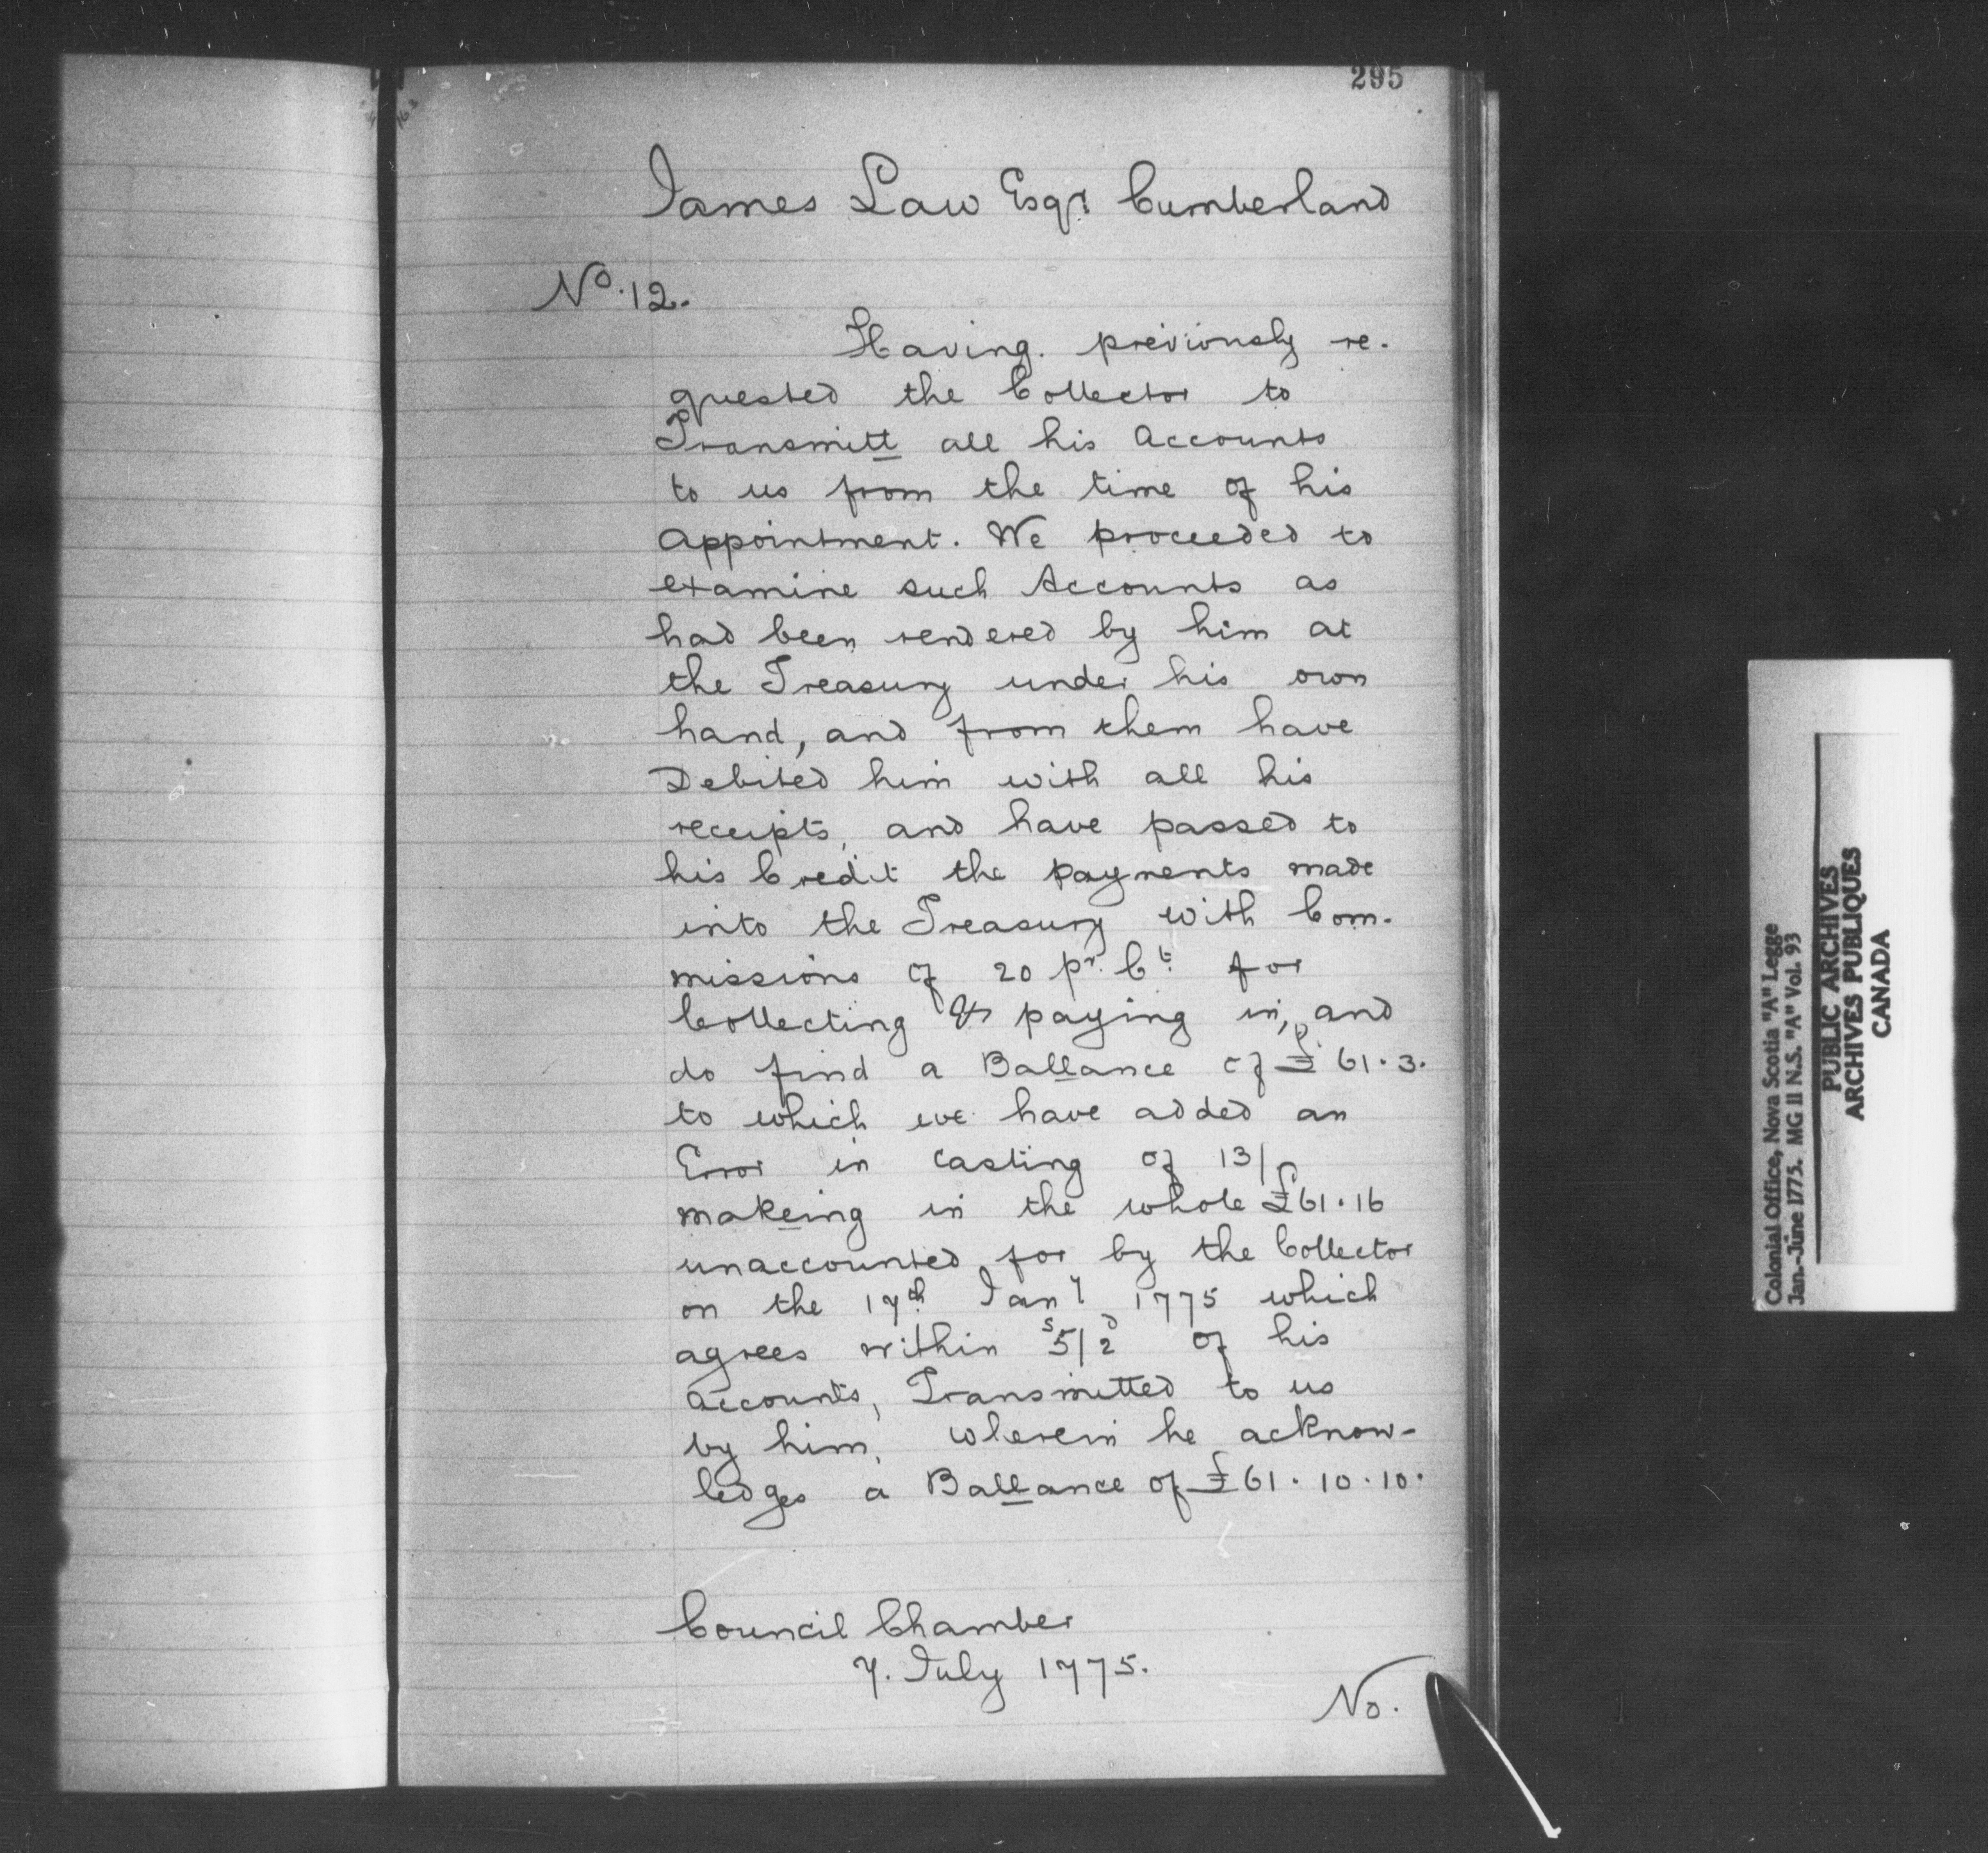 295
James Law Esqr. Cumberland
No. 12.
Having. previously re.
quested the Collector to
Transmitt all his Accounts
to us from the time of his
Appointment. We proceeded to
examine such Accounts as
had been rendered by him at
the Treasury under his own
hand, and from them have
Debited him with all his
receipts, and have passed to
his Credit the payments made
into the Treasury with Com.
missions of 20 pr. Ct. for
Collecting & paying in, and
do find a Ballance of £ 61.3.
to which we have added an
Error in casting of 13/
makeing in the whole £61.16
unaccounted for by the Collector
on the 17th Jany 1775 which
agrees within s5/2d of his
Accounts, Transmitted to us
by him, wherein he acknow-
ledges a Ballance of £61.10.10.
Council Chamber
7. July 1775.
No.
Colonial Office, Nova Scotia "A" Legge
Jan.-June 1775. MG II N.S. "A" Vol. 93
PUBLIC ARCHIVES
ARCHIVES PUBLIQUES
CANADA